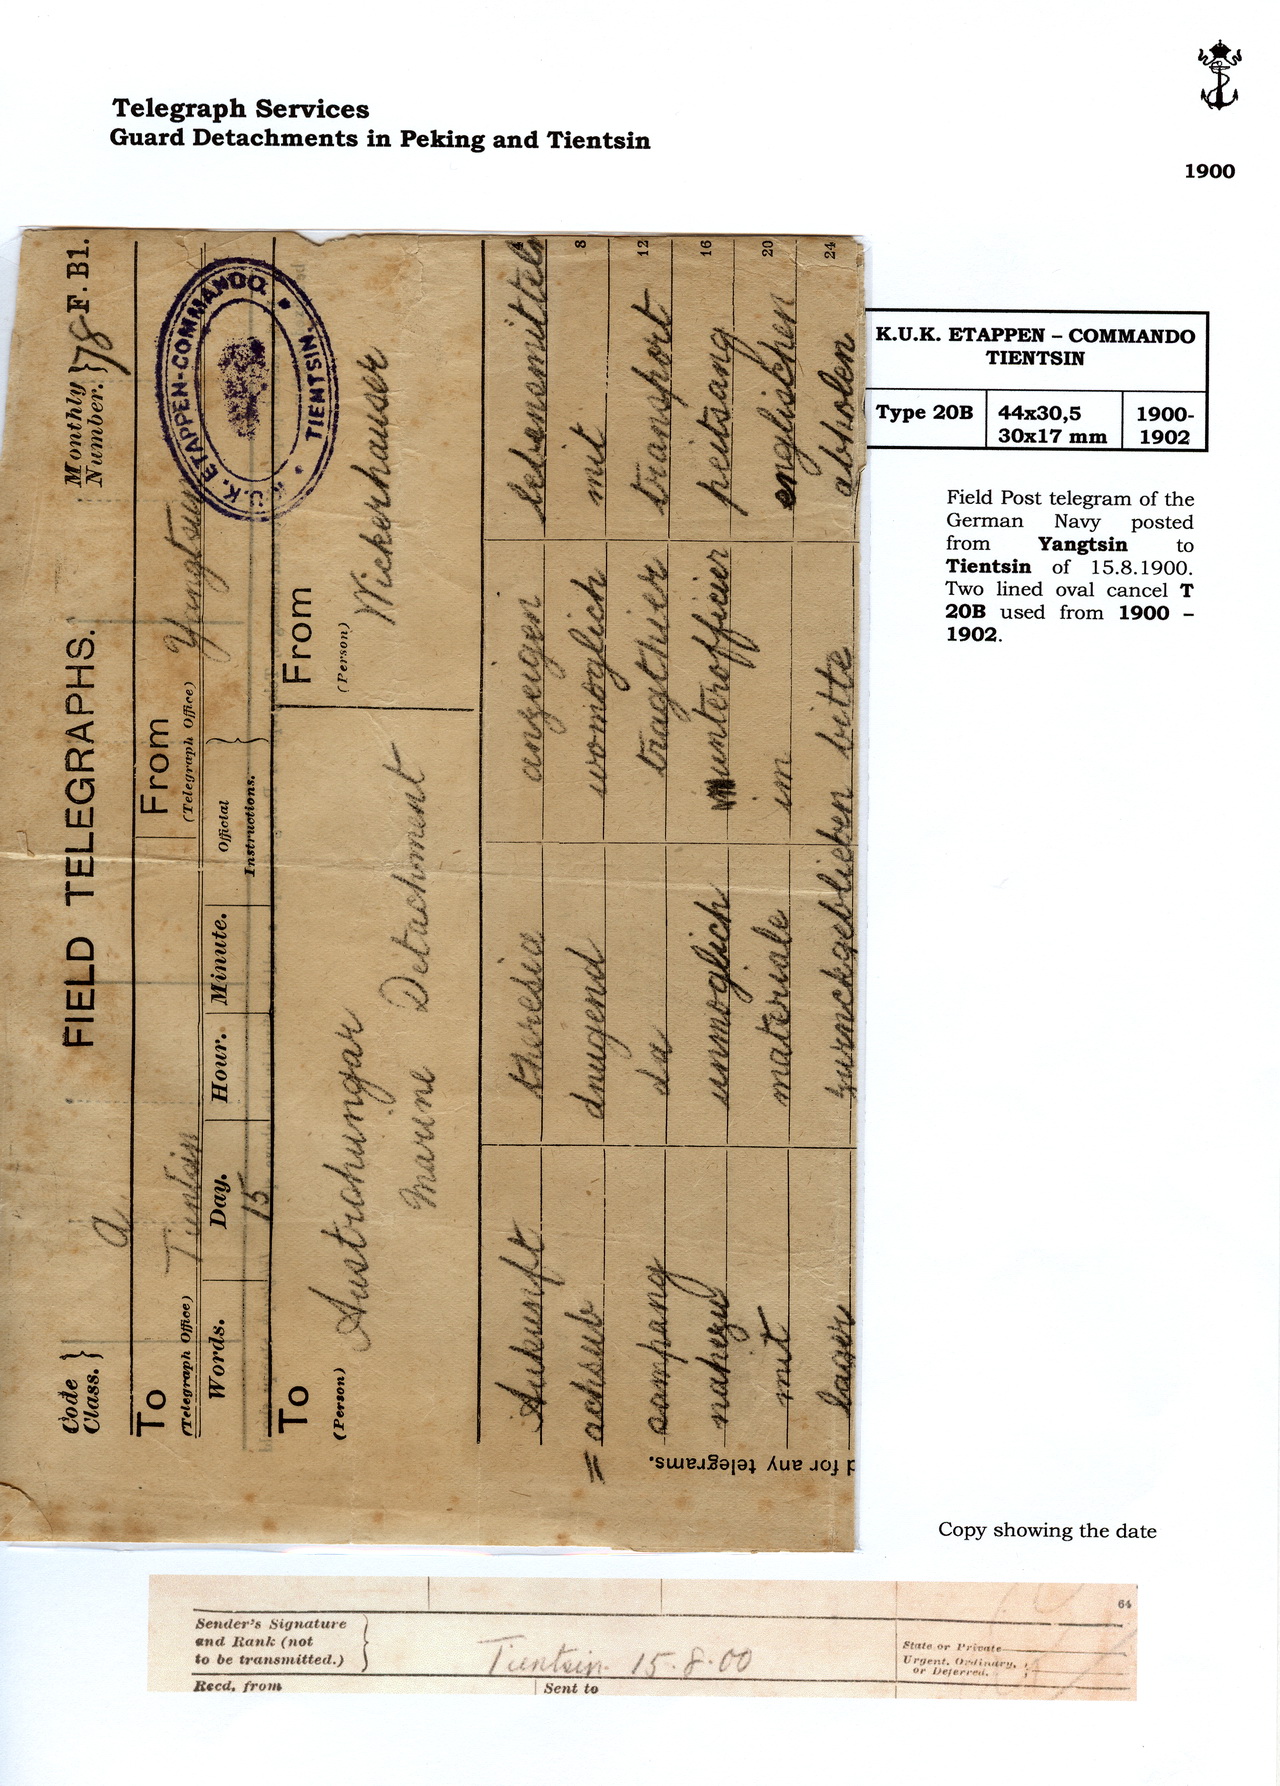 Telegraph Services
Guard Detachments in Peking and Tientsin
1900
Code Class. } a
FIELD TELEGRAPHS.
Monthly Number. } 78 F. B1.
To (Telegraph Office) Tientsin
From (Telegraph Office) Yangtsun
Words. Day. Hour. Minute. Official Instructions. }
15
K.U.K. ETAPPEN-COMMANDO. * TIENTSIN. *
To (Person) Austrohungar
Marine Detachment
From (Person) Wickerhauser
Ankunft theresia anzeigen lebensmittel 4
= achsub dnugend womoglich mit 8
compang da tragthier transport 12
nahezu unmoglich unterofficier peitsang 16
mit materiale im englischen 20
lager zurnckgeblieben bitte abholen 24
d for any telegrams.
K.U.K. ETAPPEN – COMMANDO
TIENTSIN
Type 20B 44x30,5 1900-
30x17 mm 1902
Field Post telegram of the
German Navy posted
from Yangtsin to
Tientsin of 15.8.1900.
Two lined oval cancel T
20B used from 1900 –
1902.
Copy showing the date
64
Sender's Signature
and Rank (not
to be transmitted.) }
Tientsin 15.8.00
State or Private
Urgent, Ordinary,
or Deferred. }
Recd. from Sent to